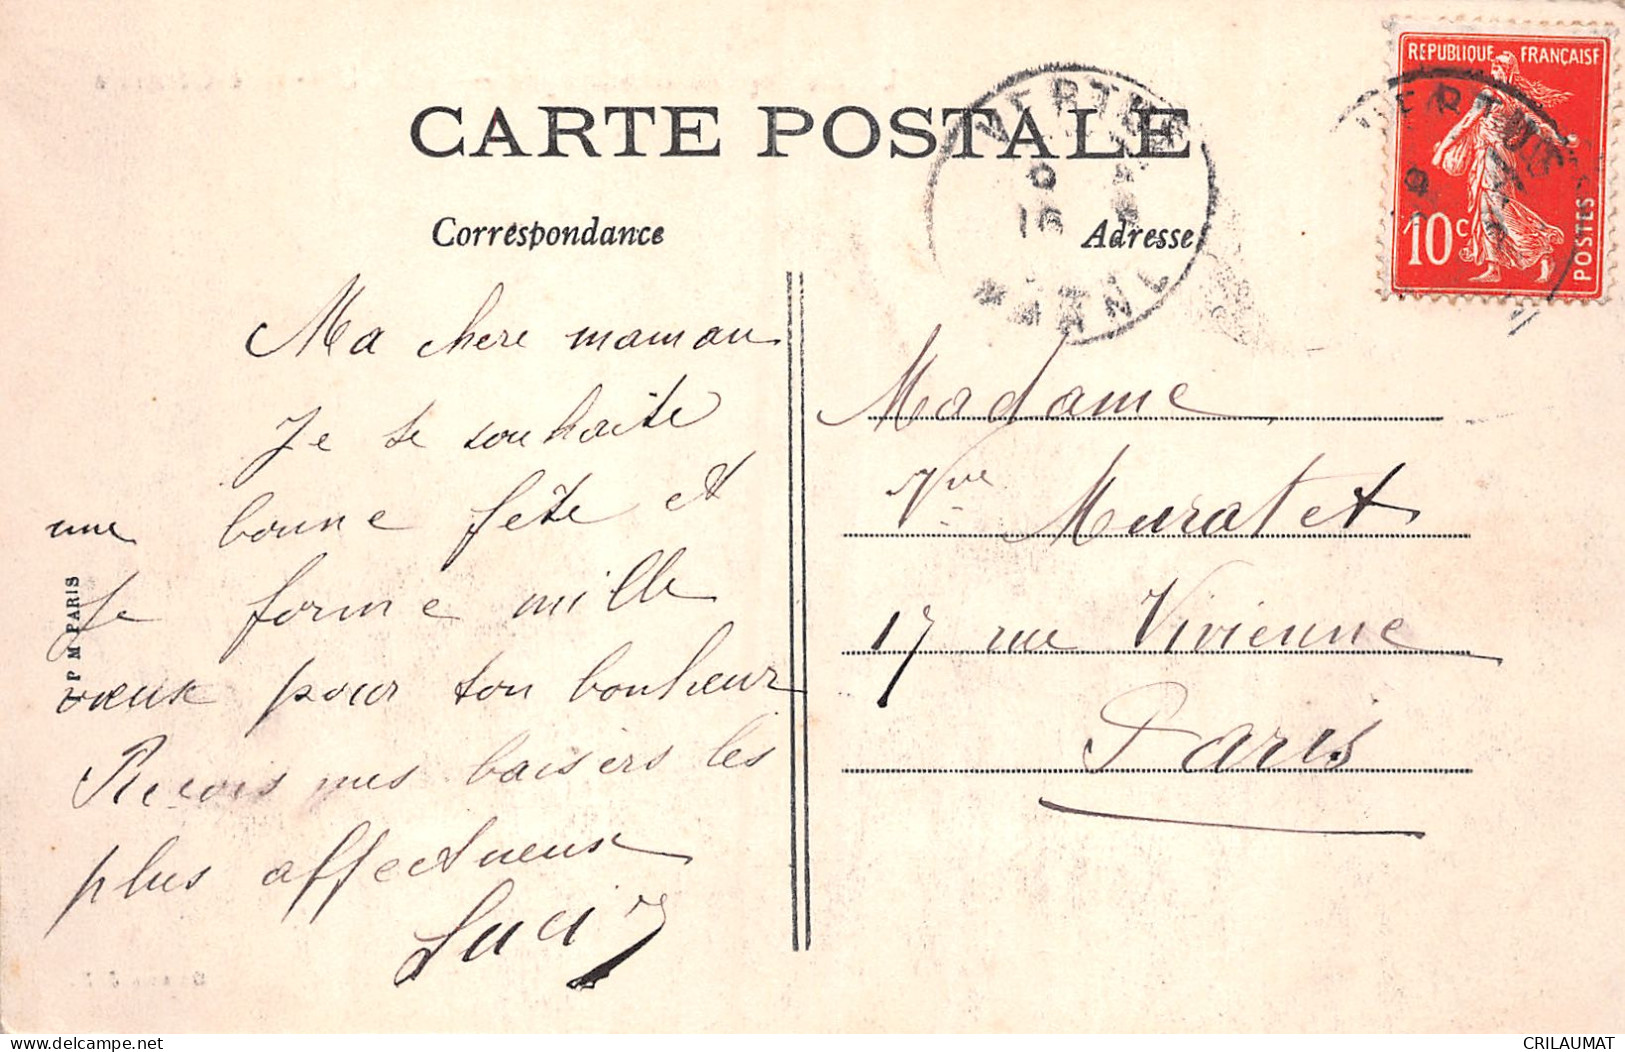 CARTE POSTALE
Correspondance
Adresse
REPUBLIQUE FRANÇAISE
10c
POSTES
VERTUS
MARNE
VERTUS
Ma chere maman
Je te souhaite
une bonne fête et
Je forme mille
vœux pour ton bonheur
Recois mes baisers les
plus affectueux
P M PARIS
Madame
Vve Muratet
17 rue Vivienne
Paris
www.delcampe.net
CRILAUMAT